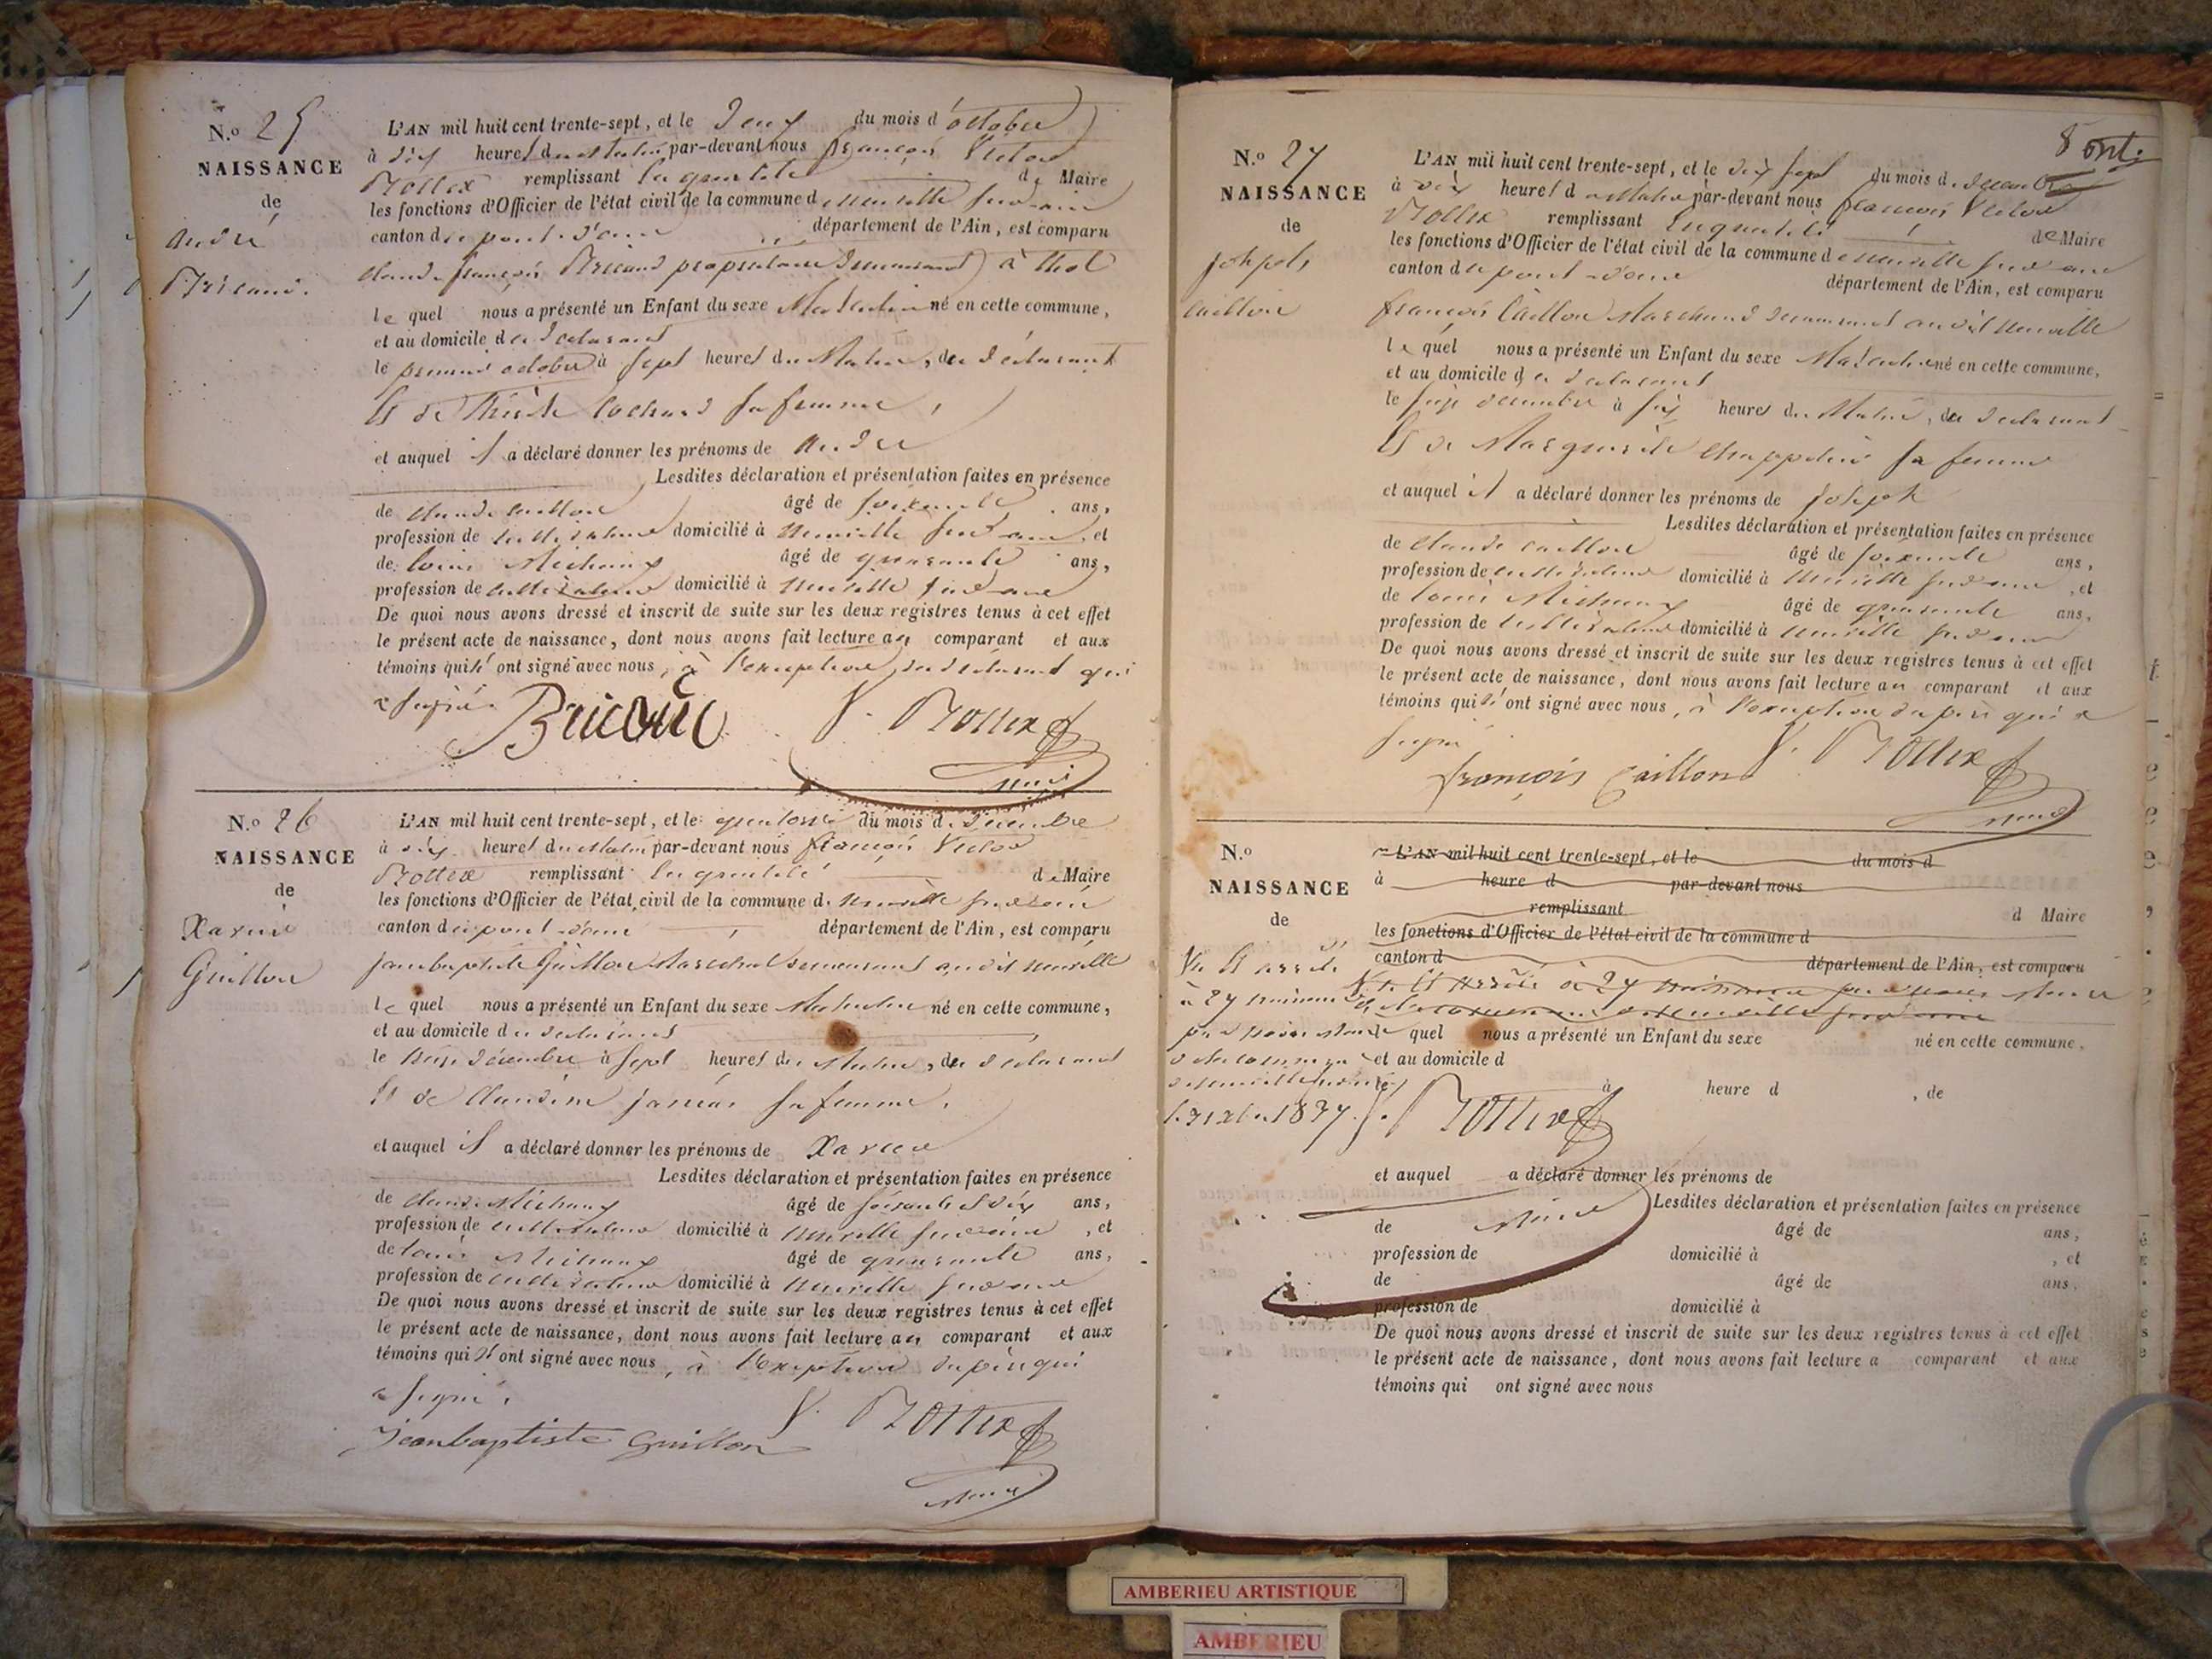 N.o 25
NAISSANCE
de
André
Bricaud.
L'AN mil huit cent trente-sept, et le Deux du mois d'octobre
à dix heures du Matin par-devant nous françois Victor
Bottex remplissant la qualité de Maire
les fonctions d'Officier de l'état civil de la commune de Neuville sur ain
canton de pont-d'ain département de l'Ain, est comparu
Claude françois Bricaud propriétaire demeurant à thol
lequel nous a présenté un Enfant du sexe Masculin né en cette commune,
et au domicile du déclarant
le premier octobre à sept heures du Matin, du déclarant
Et de Thérèse Cochard sa femme,
et auquel il a déclaré donner les prénoms de André
Lesdites déclaration et présentation faites en présence
de Claude Caillon âgé de soixante ans,
profession de cultivateur domicilié à Neuville sur ain, et
de Louis Michaux âgé de quarante ans,
profession de cultivateur domicilié à Neuville sur ain
De quoi nous avons dressé et inscrit de suite sur les deux registres tenus à cet effet
le présent acte de naissance, dont nous avons fait lecture au comparant et aux
témoins qui n'ont signé avec nous, à l'exception du déclarant qui
a signé.
Bricaud V. Bottex
maire
N.o 26
NAISSANCE
de
Xavier
Guillon
L'AN mil huit cent trente-sept, et le quatorze du mois de Décembre
à dix heures du Matin par-devant nous françois Victor
Bottex remplissant la qualité de Maire
les fonctions d'Officier de l'état civil de la commune de Neuville sur ain
canton de pont-d'ain département de l'Ain, est comparu
jean baptiste Guillon Maréchal demeurant audit Neuville
lequel nous a présenté un Enfant du sexe Masculin né en cette commune,
et au domicile du déclarant
le décembre à sept heures du Matin, du déclarant
Et de Claudine sa femme,
et auquel il a déclaré donner les prénoms de Xavier
Lesdites déclaration et présentation faites en présence
de Claude Michaux âgé de soixante et dix ans,
profession de cultivateur domicilié à Neuville sur ain, et
de Louis Michaux âgé de quarante ans,
profession de cultivateur domicilié à Neuville sur ain
De quoi nous avons dressé et inscrit de suite sur les deux registres tenus à cet effet
le présent acte de naissance, dont nous avons fait lecture au comparant et aux
témoins qui n'ont signé avec nous, à l'exception du père qui
a signé.
Jean baptiste Guillon V. Bottex
maire
N.o 27
NAISSANCE
de
joseph
Caillon
L'AN mil huit cent trente-sept, et le dix sept du mois de décembre
à dix heures du Matin par-devant nous françois Victor
Bottex remplissant la qualité de Maire
les fonctions d'Officier de l'état civil de la commune de Neuville sur ain
canton de pont-d'ain département de l'Ain, est comparu
françois Caillon Marchand demeurant audit Neuville
lequel nous a présenté un Enfant du sexe Masculin né en cette commune,
et au domicile du déclarant
le seize décembre à six heures du Matin, du déclarant
Et de Marguerite sa femme
et auquel il a déclaré donner les prénoms de joseph
Lesdites déclaration et présentation faites en présence
de Claude Caillon âgé de soixante ans,
profession de cultivateur domicilié à Neuville sur ain, et
de Louis Michaux âgé de quarante ans,
profession de cultivateur domicilié à Neuville sur ain
De quoi nous avons dressé et inscrit de suite sur les deux registres tenus à cet effet
le présent acte de naissance, dont nous avons fait lecture au comparant et aux
témoins qui n'ont signé avec nous, à l'exception du père qui a
signé
françois Caillon V. Bottex
maire
N.o
NAISSANCE
de
Vu et arrêté
à 27 naissances
par nous Maire
de la commune
de Neuville sur ain
1837.
L'AN mil huit cent trente-sept, et le du mois d
à heure d par-devant nous
remplissant d Maire
les fonctions d'Officier de l'état civil de la commune d
canton d département de l'Ain, est comparu
Vu Et Arrêté à 27 naissances par nous Maire
de la commune de Neuville sur ain
quel nous a présenté un Enfant du sexe né en cette commune,
et au domicile d
le à heure d , de
V. Bottex
et auquel a déclaré donner les prénoms de
Lesdites déclaration et présentation faites en présence
de maire âgé de ans,
profession de domicilié à , et
de âgé de ans,
profession de domicilié à
De quoi nous avons dressé et inscrit de suite sur les deux registres tenus à cet effet
le présent acte de naissance, dont nous avons fait lecture a comparant et aux
témoins qui ont signé avec nous
AMBERIEU ARTISTIQUE
AMBERIEU